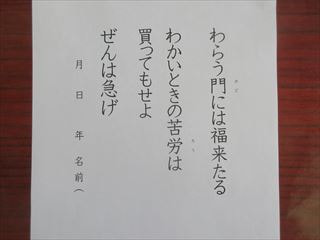 わらう門には福来たる
かど
わかいときの苦労は
ろう
買ってもせよ
ぜんは急げ
月 日 年 名前(